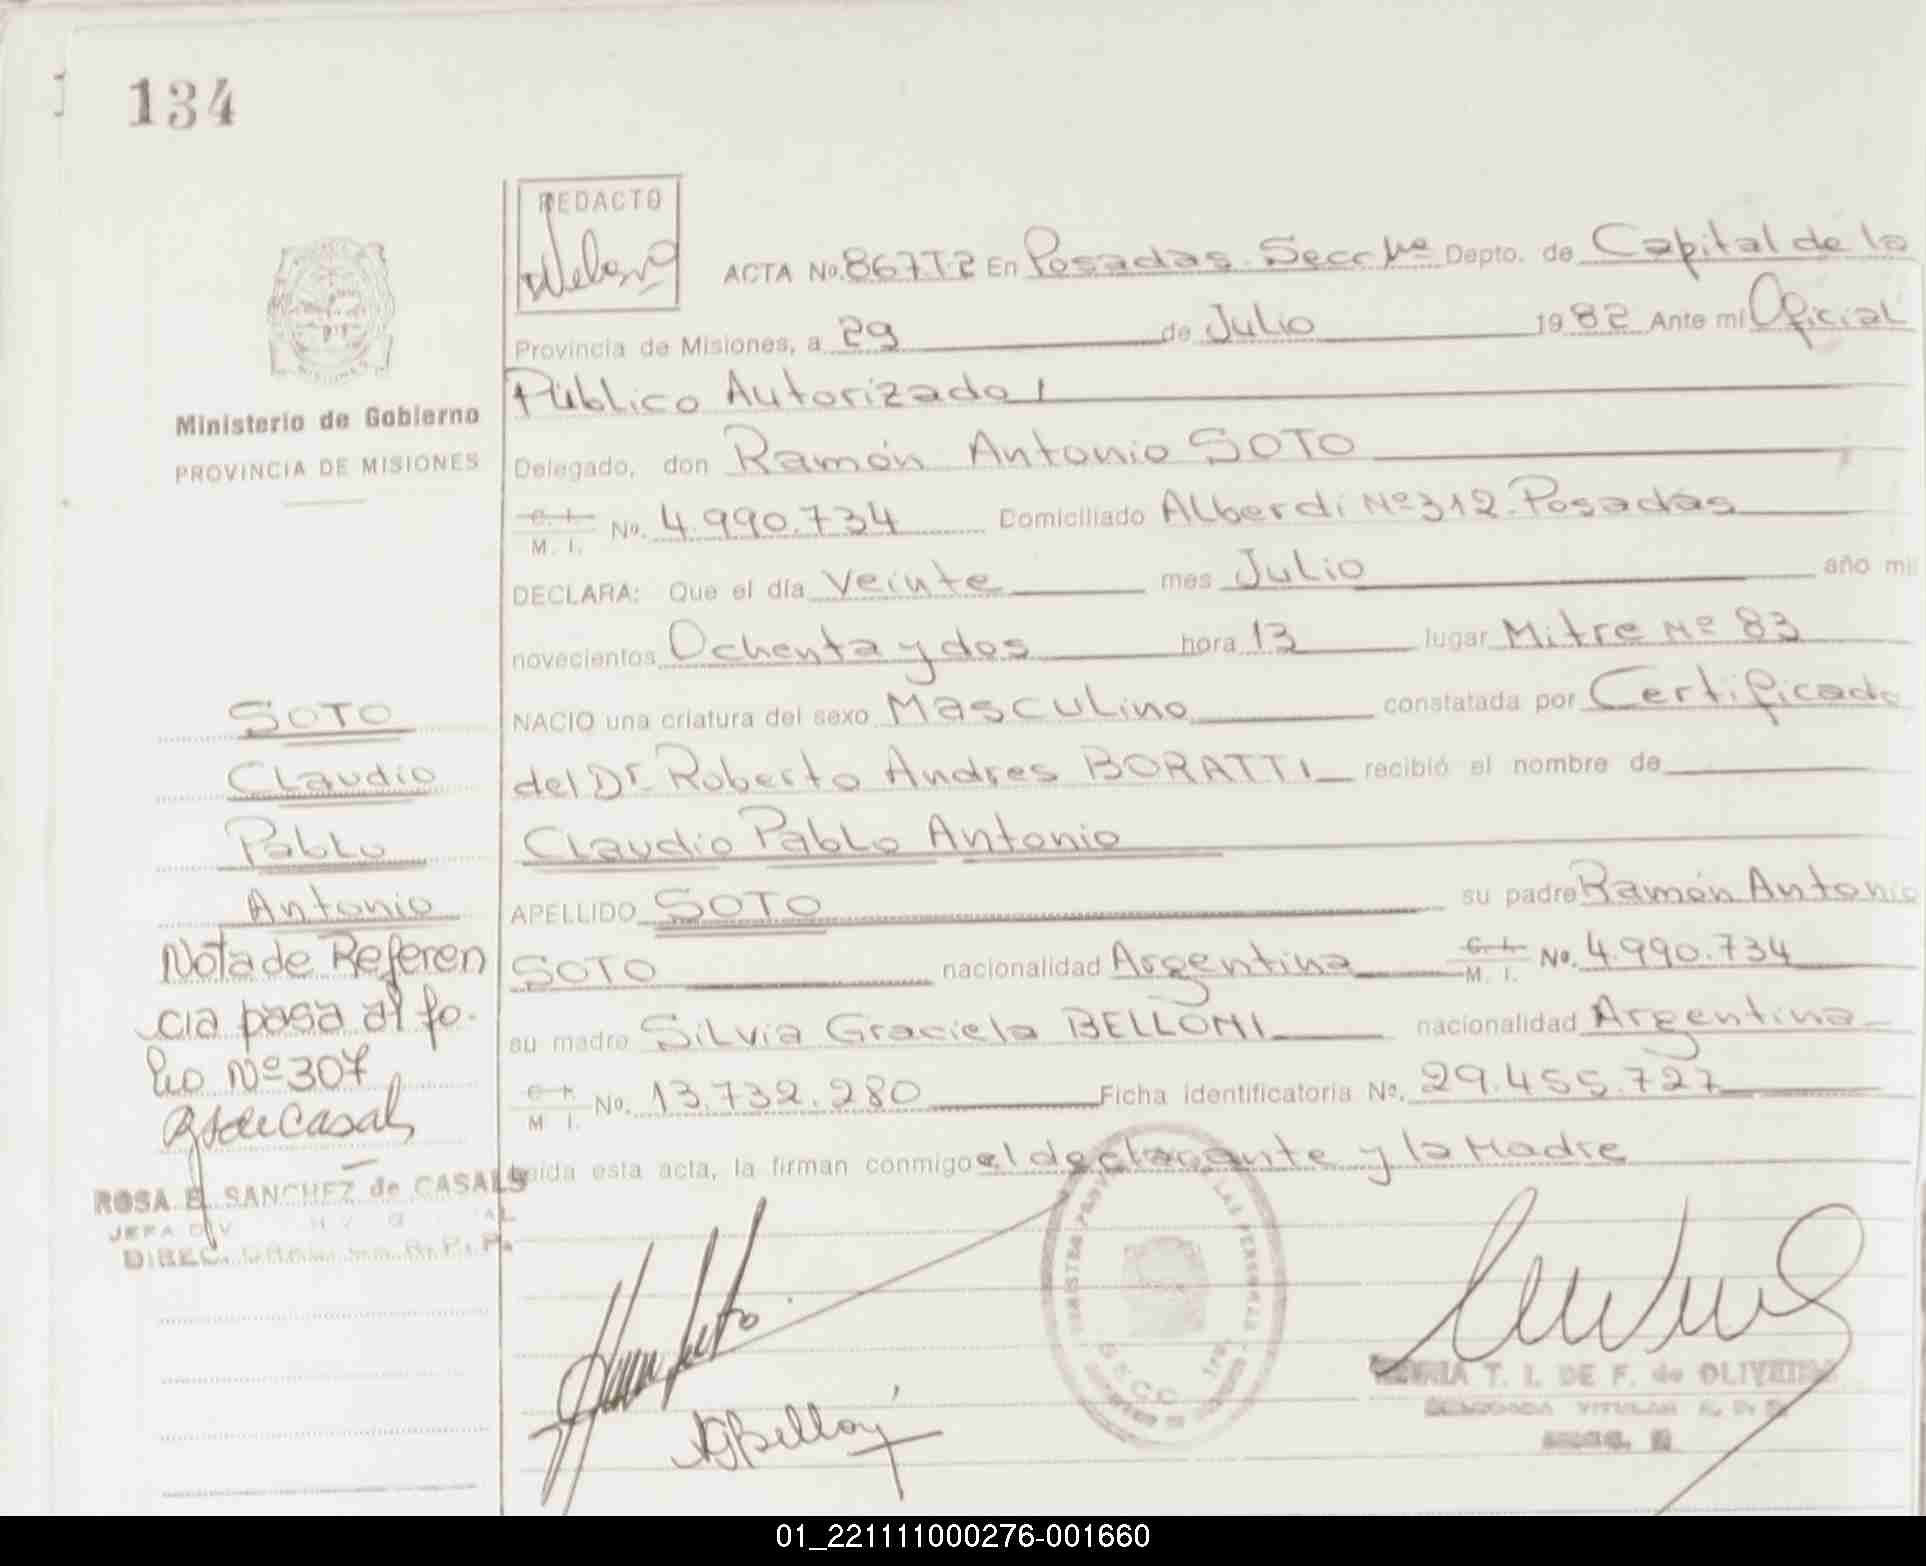 134
REDACTO
ACTA No. 867 T. 2 En Posadas. Secc 1ª Depto. de Capital de la
Provincia de Misiones, a 29 de Julio 1982 Ante mi Oficial
Público Autorizado
Delegado, don Ramón Antonio SOTO
C. I.
M. I. No. 4.990.734 Domiciliado Alberdi Nº 312. Posadas
DECLARA: Que el día Veinte mes Julio año mil
novecientos Ochenta y dos hora 13 lugar Mitre Nº 83
NACIO una criatura del sexo Masculino constatada por Certificado
del Dr. Roberto Andres BORATTI recibió el nombre de
Claudio Pablo Antonio
APELLIDO SOTO su padre Ramón Antonio
SOTO nacionalidad Argentina C. I. M. I. No. 4.990.734
su madre Silvia Graciela BELLONI nacionalidad Argentina
C. I. M. I. No. 13.732.280 Ficha identificatoria No. 29.455.727
Leida esta acta, la firman conmigo el declarante y la Madre
MISIONES
Ministerio de Gobierno
PROVINCIA DE MISIONES
SOTO
Claudio
Pablo
Antonio
Nota de Referen
cia pasa al fo.
lio Nº 307
RSdeCasals
ROSA E. SANCHEZ de CASALS
JEFA DIV
DIREC. R. P. P.
LAS PERSONAS
SECC. 1ra.
T. I. DE F. de OLIVEIRA
TITULAR
01_221111000276-001660